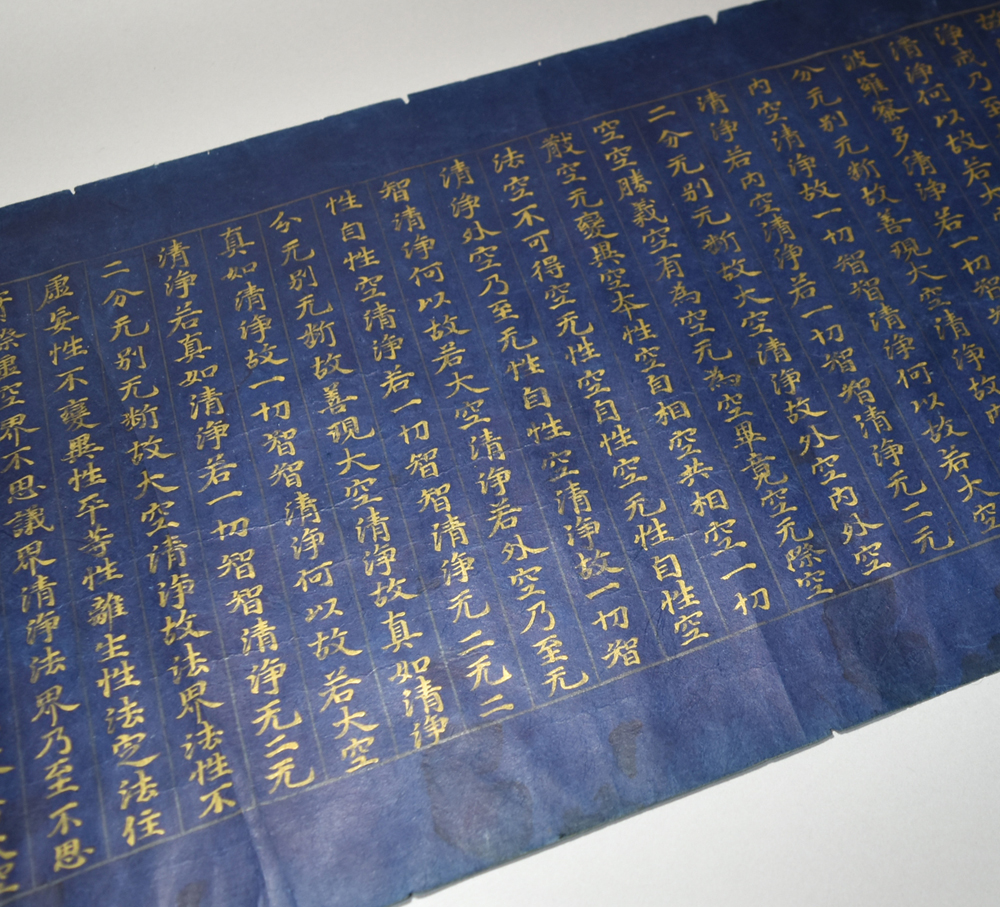 故
淨戒乃至
清淨何以故若大
波羅蜜多清淨若一切智智
分无别无斷故善現大空清淨故
内空清淨故一切智智清淨何以故若大空
清淨若内空清淨若一切智智清淨无二无
二分无别无斷故大空清淨故外空内外空
空空勝義空有為空无為空畢竟空无際空
散空无變異空本性空自相空共相空一切
法空不可得空无性空自性空无性自性空
清淨外空乃至无性自性空清淨故一切智
智清淨何以故若大空清淨若外空乃至无
性自性空清淨若一切智智清淨无二无二
分无别无斷故善現大空清淨故真如清淨
真如清淨故一切智智清淨何以故若大空
清淨若真如清淨若一切智智清淨无二无
二分无别无斷故大空清淨故法界法性不
虛妄性不變異性平等性離生性法定法住
際虛空界不思議界清淨法界乃至不思